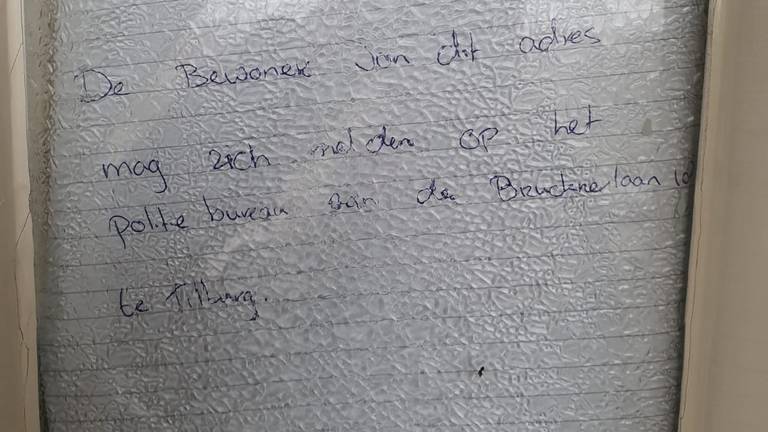 De Bewoner van dit adres
mag zich melden op het
politie bureau aan de Brucknerlaan 10
te Tilburg.